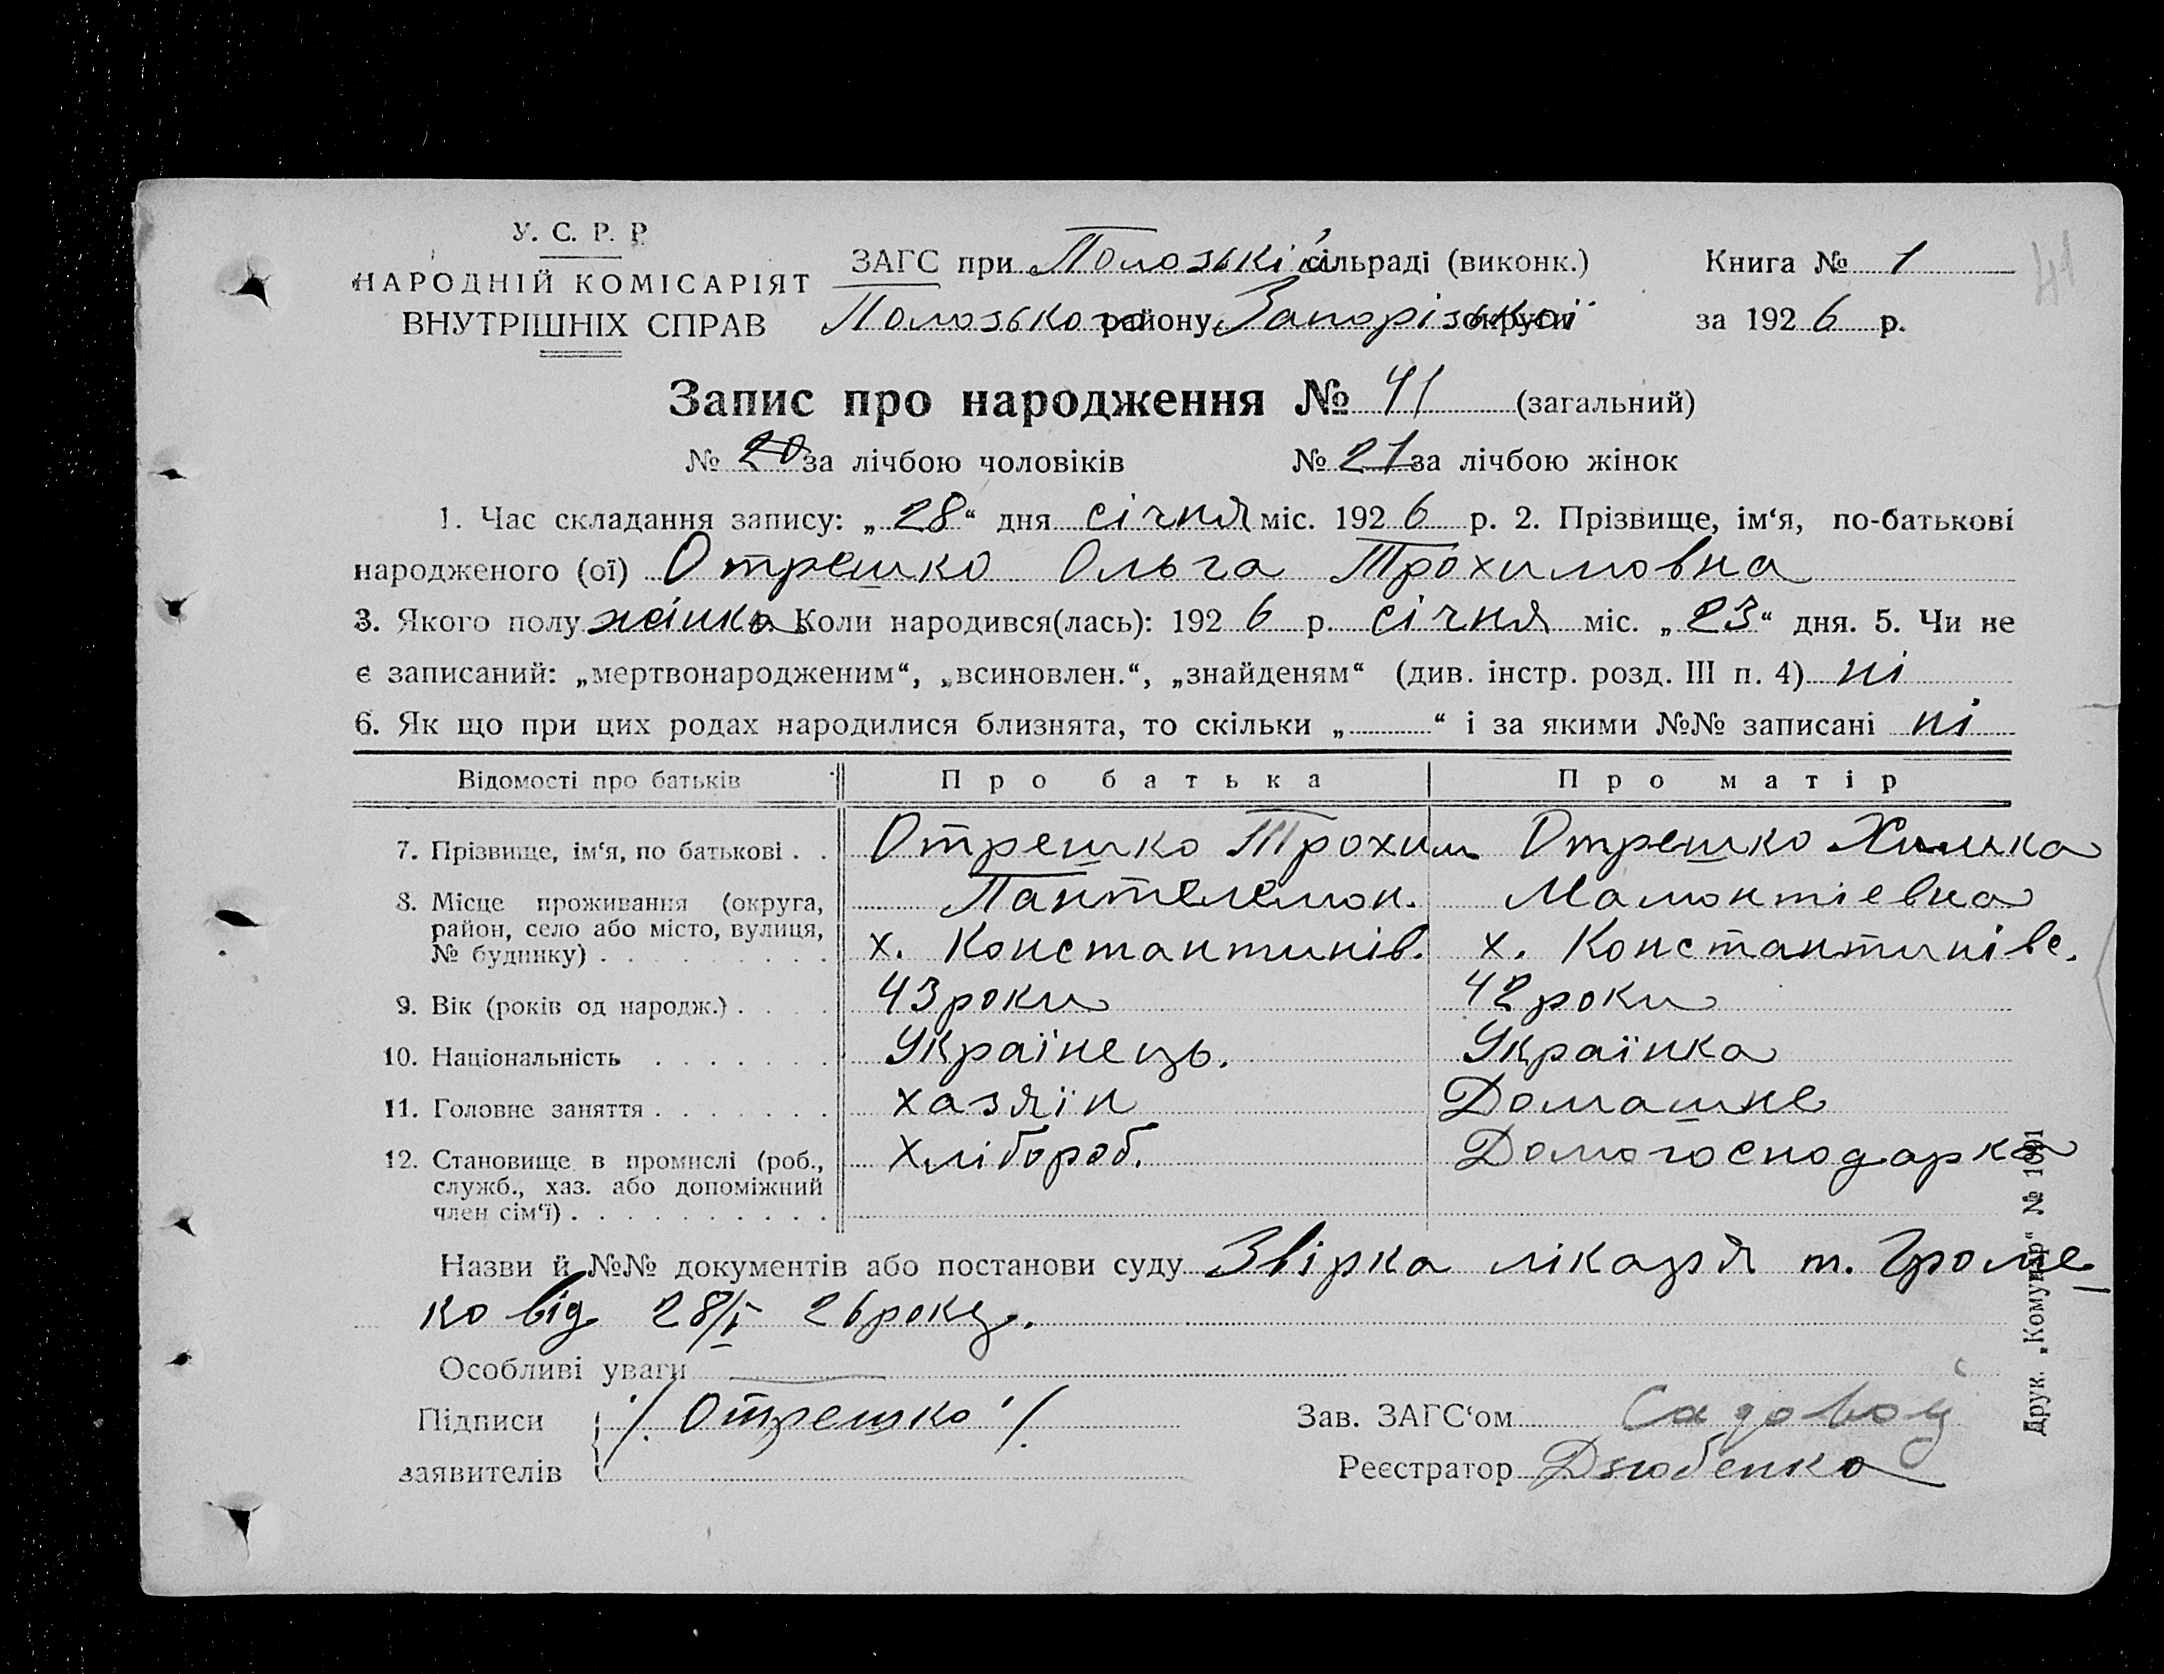 У. С. Р. Р
НАРОДНІЙ КОМІСАРІЯТ
ВНУТРІШНІХ СПРАВ
ЗАГС при Пологзькій сільраді (виконк.)
Пологзького району Запорізської округи
Книга № 1
за 1926 р.
41
Запис про народження № 41 (загальний)
№ 20 за лічбою чоловіків № 21 за лічбою жінок
1. Час складання запису: „28“ дня січня міс. 1926 р. 2. Прізвище, ім‘я, по-батькові
народженого (ої) Отрешко Ольга Трохимовна
3. Якого полу жінка Коли народився(лась): 1926 р. січня міс. „23“ дня. 5. Чи не
є записаний: „мертвонародженим“, „всиновлен.“, „знайденям“ (див. інстр. розд. III п. 4) ні
6. Як що при цих родах народилися близнята, то скільки „............“ і за якими №№ записані ні
Відомості про батьків Про батька Про матір
7. Прізвище, ім‘я, по батькові . . Отрешко Трохим Отрешко Химка
Пантелемон. Мамонтіевна
8. Місце проживання (округа,
район, село або місто, вулиця,
№ будинку) . . . . . . . . . х. Константинів. х. Константинівс.
9. Вік (років од народж.) . . . . 43 роки 42 роки
10. Національність . . . . . . . Українець. Українка
11. Головне заняття . . . . . . . хазяїн Домашнє
12. Становище в промислі (роб., Хлібороб. Домогосподарка
служб., хаз. або допоміжний
член сім‘ї) . . . . . . . . . .
Назви й №№ документів або постанови суду Звірка лікаря т. Громе
ко від 28/I 26 року.
Особливі уваги
Підписи ./. Отрешко ./.
заявителів
Зав. ЗАГС‘ом Садовой
Реєстратор Дзюбенко
Друк. „Комунар“ № 1091